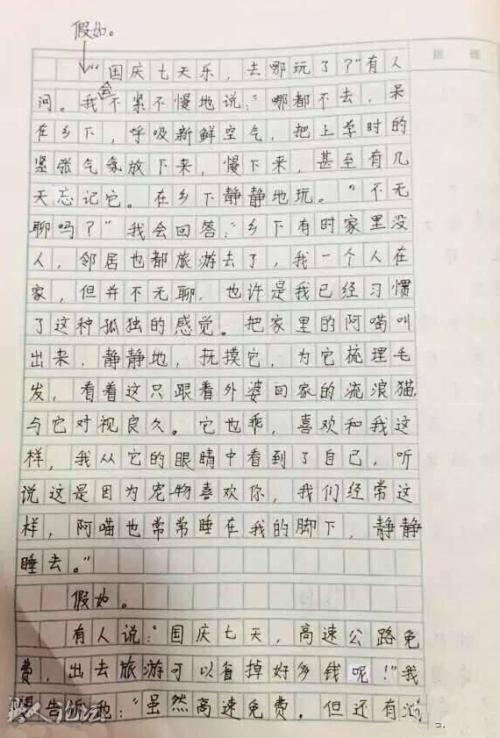 假如。
"国庆七天乐，去哪玩了？"有人
问。我会不紧不慢地说："哪都不去，呆
在乡下，呼吸新鲜空气，把上条时的
紧张气氛放下来，慢下来，甚至有几
天忘记它。在乡下静静地玩。"不无
聊吗？"我会回答："乡下有时家里没
人，邻居也都旅游去了，我一个人在
家，但并不无聊，也许是我已经习惯
了这种孤独的感觉。把家里的阿喵叫
出来，静静地，抚摸它，为它梳理毛
发，看着这只跟着外婆回家的流浪猫，
与它对视良久。它也乖，喜欢和我这
样，我从它的眼睛中看到了自己，听
说这是因为宠物喜欢你，我们经常这
样，阿喵也常常睡在我的脚下，静静
睡去。"
假如。
有人说："国庆七天，高速公路免
费，出去旅游可以省掉好多钱呢！"我
告诉她："虽然高速免费，但还有